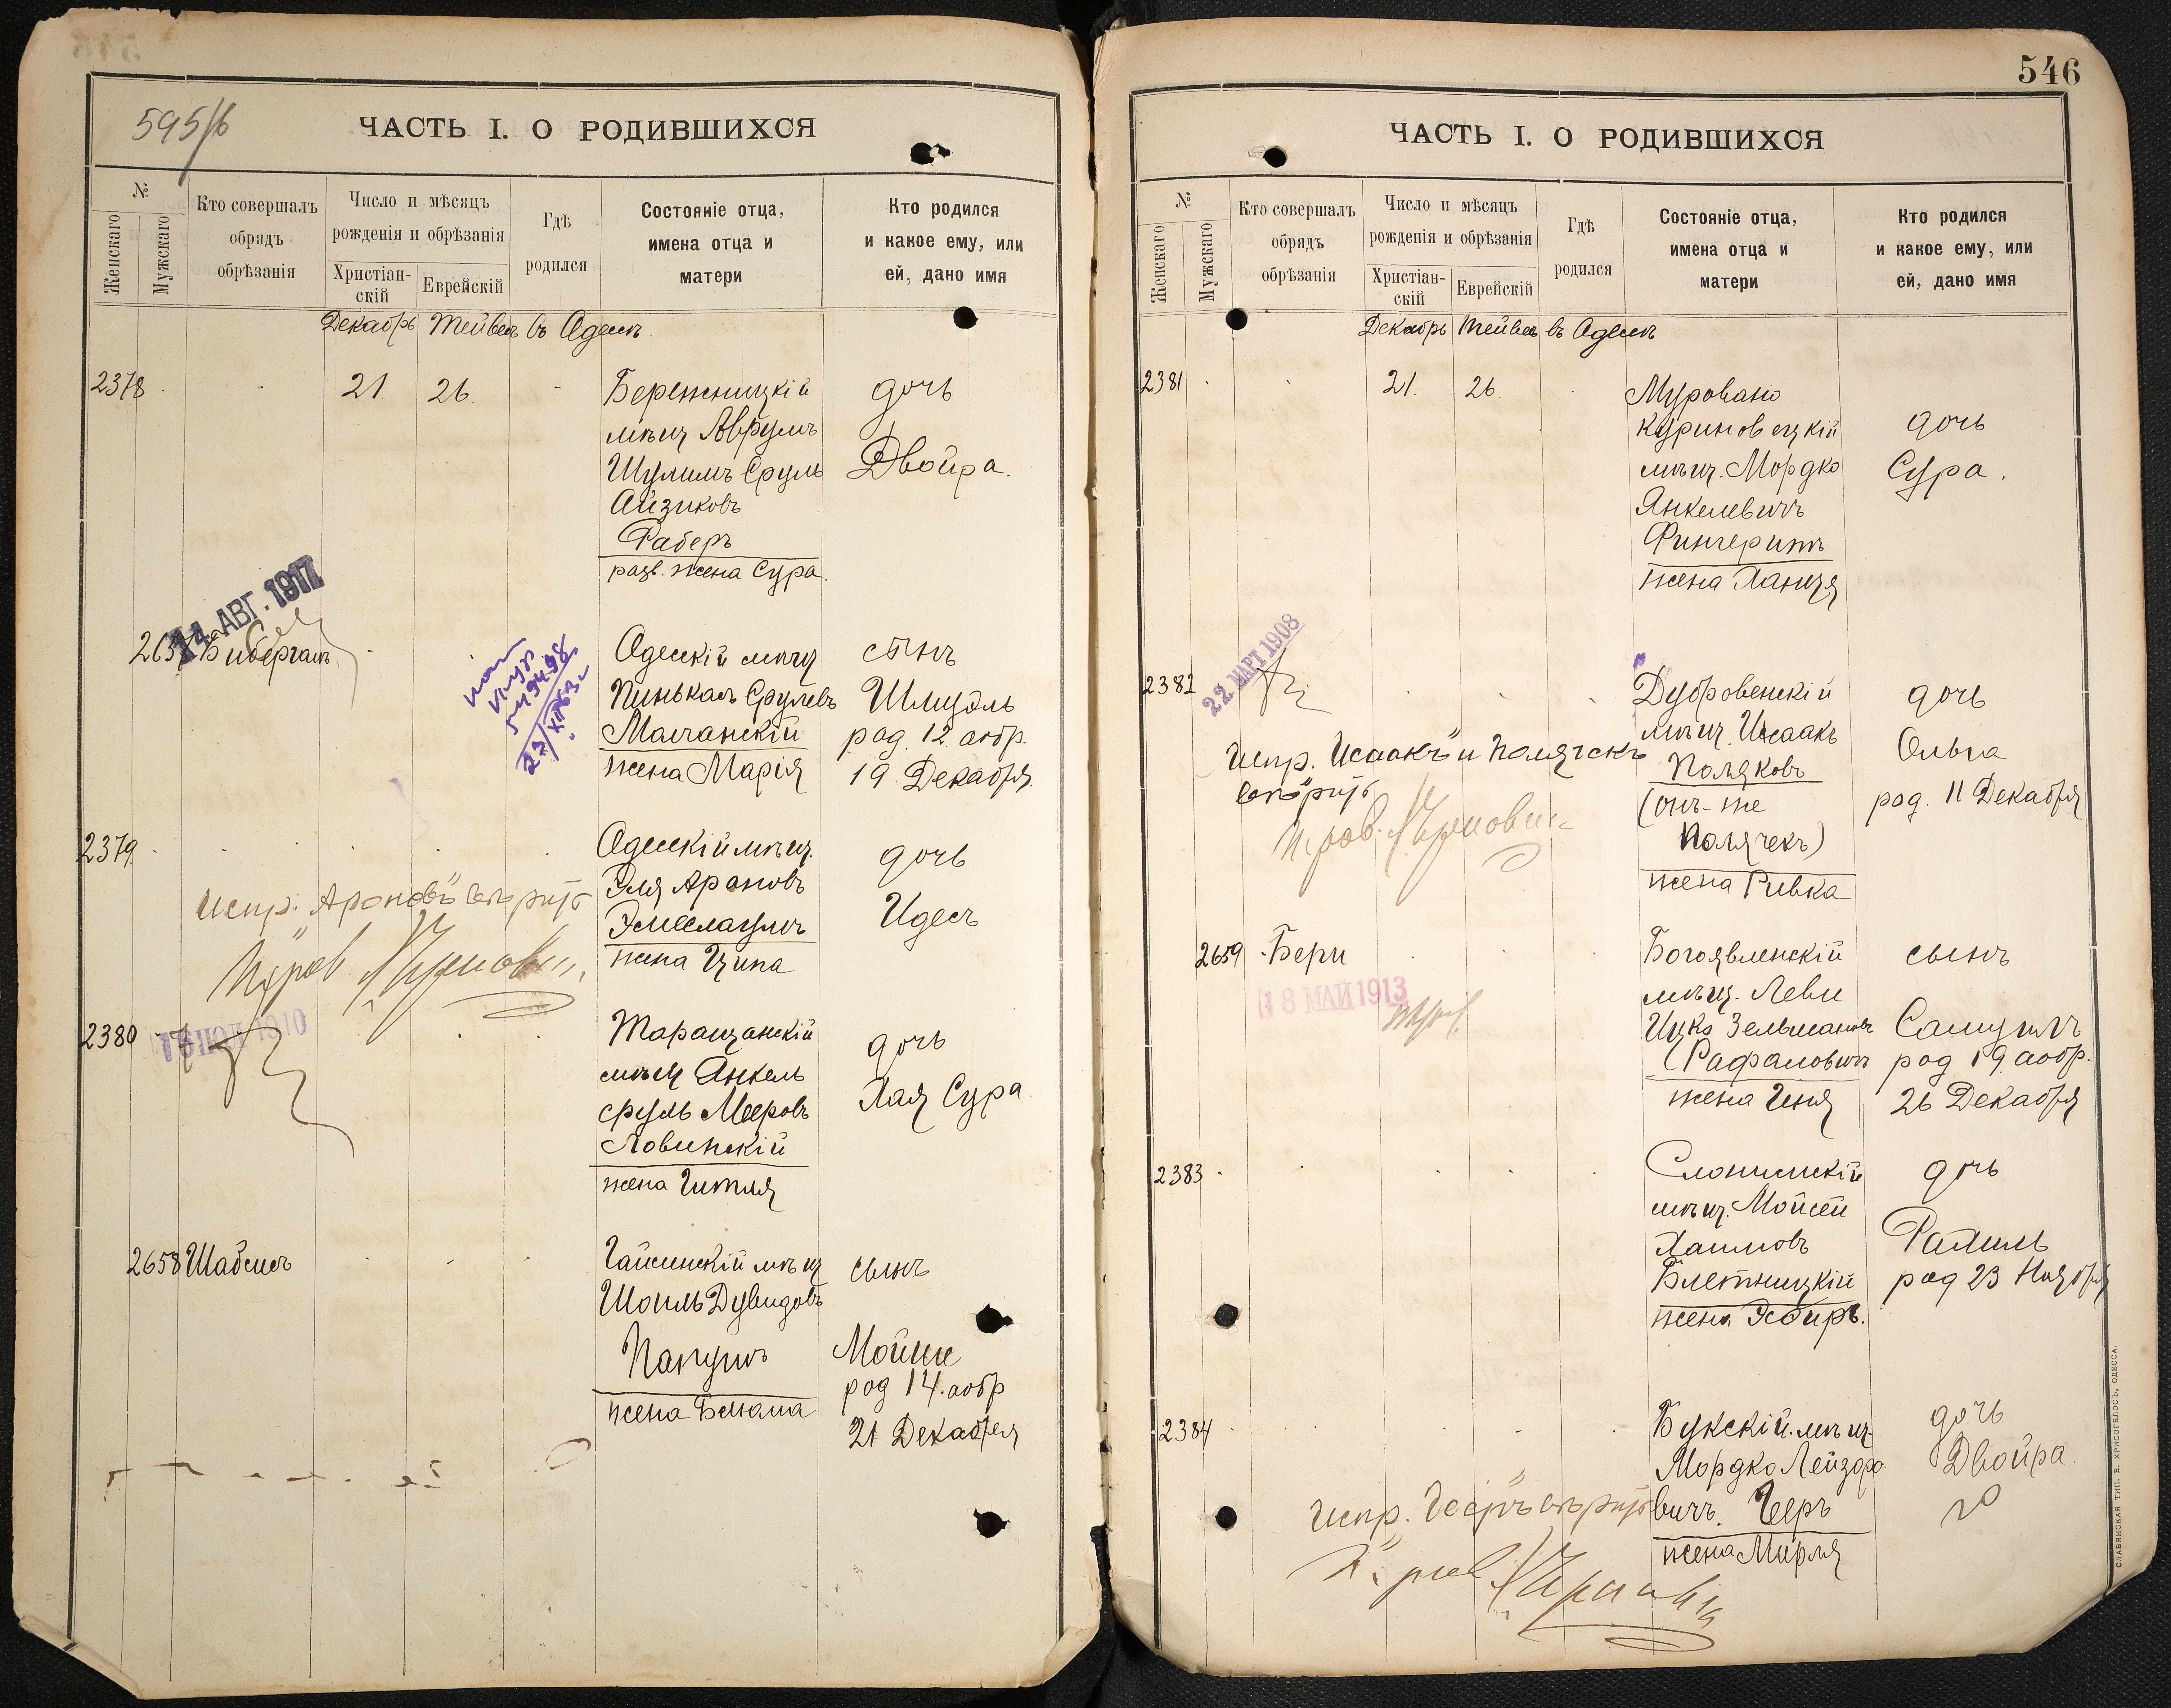 595/б
ЧАСТЬ I. О РОДИВШИХСЯ
№
Женскаго
Мужскаго
Кто совершалъ
обрядъ
обрѣзанія
Число и мѣсяцъ
рожденія и обрѣзанія
Христіан-
скій
Еврейскій
Гдѣ
родился
Состояніе отца,
имена отца и
матери
Кто родился
и какое ему, или
ей, дано имя
Декабрь Тейвесъ въ Одессѣ
2378 21 26
Бережницкій
мѣщ Аврумъ
Шулимъ Сруль
Айзиковъ
Фаберъ
разв. жена Сура.
дочь
Двойра.
14 АВГ. 1917
2657 Бибергалъ
Одесскій мѣщ
Пинькасъ Срулевъ
жена Марія
сынъ
Шмуэль
род. 12 аобр.
19 Декабря
2379
Одесскій мѣщ.
Эля Ароновъ
жена Ципа
дочь
Идесъ
Испр. "Ароновъ" вѣрить
2380
1910
Таращанскій
мѣщ Янкель
Сруль Мееровъ
Ловинскій
жена Гитля
дочь
Хая Сура
2658 Шабсисъ
Гайсинскій мѣщ
Шоиль Дувидовъ
жена Бенюма
сынъ
Мойше
род 14 аобр
21 Декабря
546
ЧАСТЬ I. О РОДИВШИХСЯ
№
Женскаго
Мужскаго
Кто совершалъ
обрядъ
обрѣзанія
Число и мѣсяцъ
рожденія и обрѣзанія
Христіан-
скій
Еврейскій
Гдѣ
родился
Состояніе отца,
имена отца и
матери
Кто родился
и какое ему, или
ей, дано имя
Декабрь Тейвесъ въ Одессѣ
2381 21. 26.
Муровано
Куриловецкій
мѣщ. Мордко
Янкелевичъ
Фингерутъ
жена Ханця
дочь
Сура.
22 МАРТ 1908
2382
Дубровенскій
мѣщ. Исаакъ
Поляковъ
(онъ-же
Полячекъ)
жена Ривка
дочь
Ольга
род. 11 Декабря
Испр. "Исаакъ" и Полячекъ
вѣрить
2659 Бери
18 МАЙ 1913
Богоявленскій
мѣщ. Леви
Ицко Зельмановъ
Рафаловичъ
жена Геня
сынъ
Самуилъ
род 19 аобр.
26 Декабря
2383
Слонимскій
мѣщ. Мойсей
Хаимовъ
Блетницкій
жена Эсфирь.
дочь
Рахиль
род 23 Ноября
2384
Букскій мѣщ-
Мордко Лейзоро-
вичъ. Черъ
жена Мирля
дочь
Двойра.
СЛАВЯНСКАЯ ТИП. Е. ХРИСОГЕЛОСЪ, ОДЕССА.